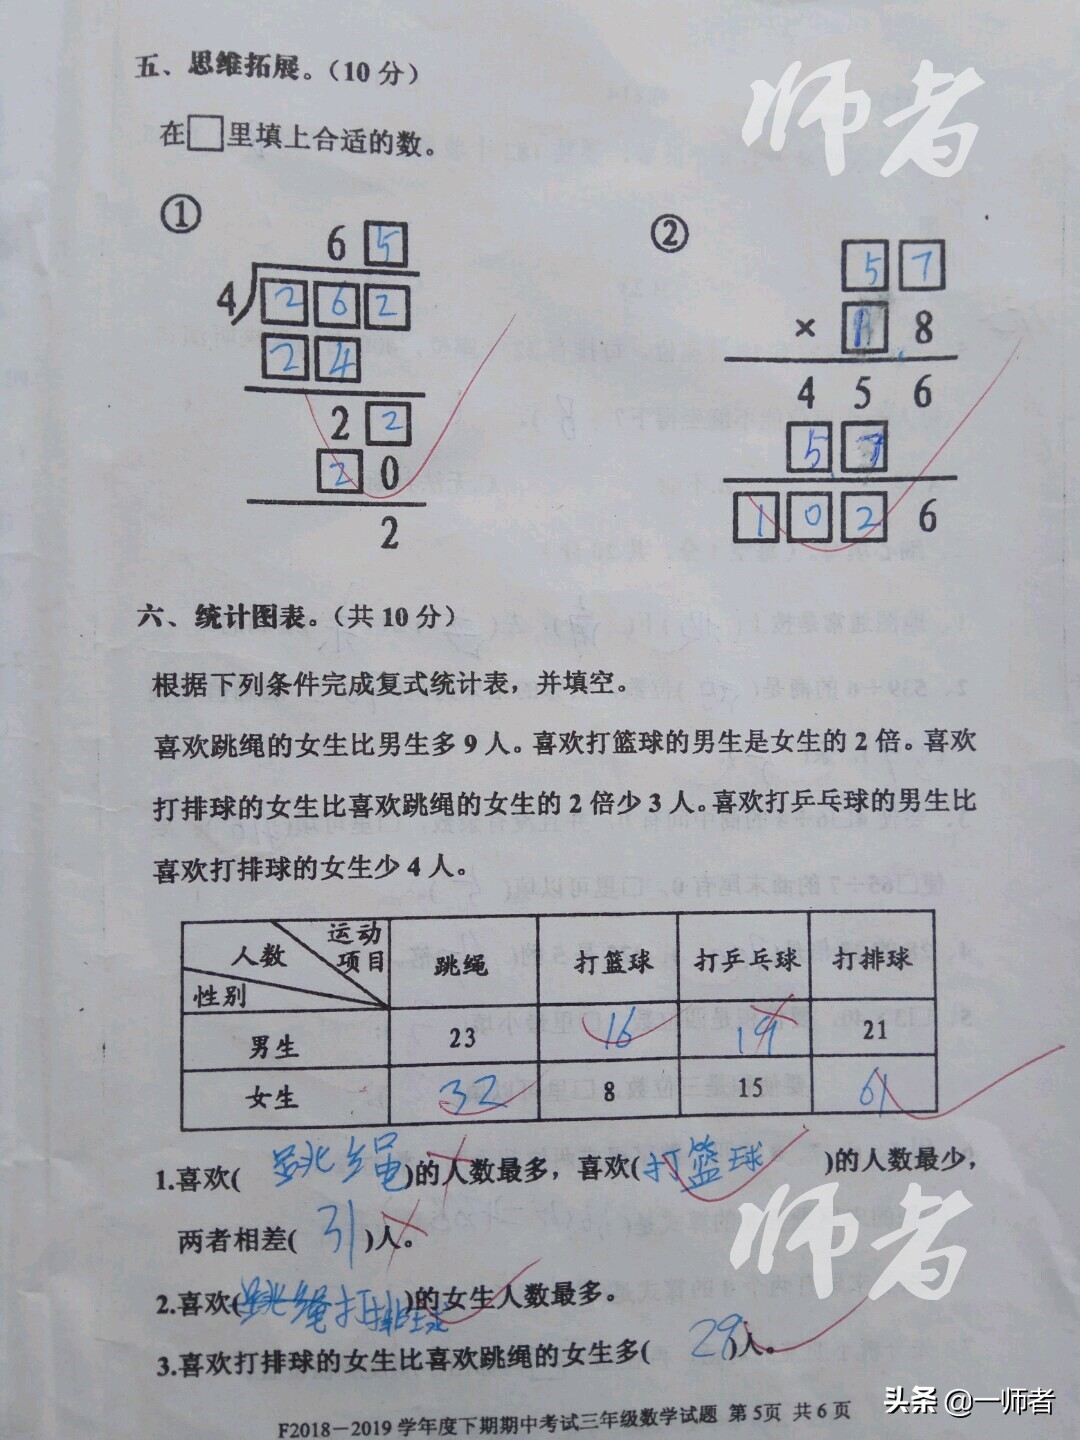 师者
五、思维拓展。（10分）
在□里填上合适的数。
①
6 5
4 2 6 2
2 4
2 2
2 0
2
②
5 7
× 1 8
4 5 6
5 7
1 0 2 6
六、统计图表。（共10分）
根据下列条件完成复式统计表，并填空。
喜欢跳绳的女生比男生多9人。喜欢打篮球的男生是女生的2倍。喜欢
打排球的女生比喜欢跳绳的女生的2倍少3人。喜欢打乒乓球的男生比
喜欢打排球的女生少4人。
人数 运动项目 性别 跳绳 打篮球 打乒乓球 打排球
男生 23 16 19 21
女生 32 8 15 61
1.喜欢(跳绳)的人数最多，喜欢(打篮球)的人数最少，
两者相差(31)人。
师者
2.喜欢(跳绳打排球)的女生人数最多。
3.喜欢打排球的女生比喜欢跳绳的女生多(29)人。
F2018－2019学年度下期期中考试三年级数学试题 第5页 共6页
头条 @一师者